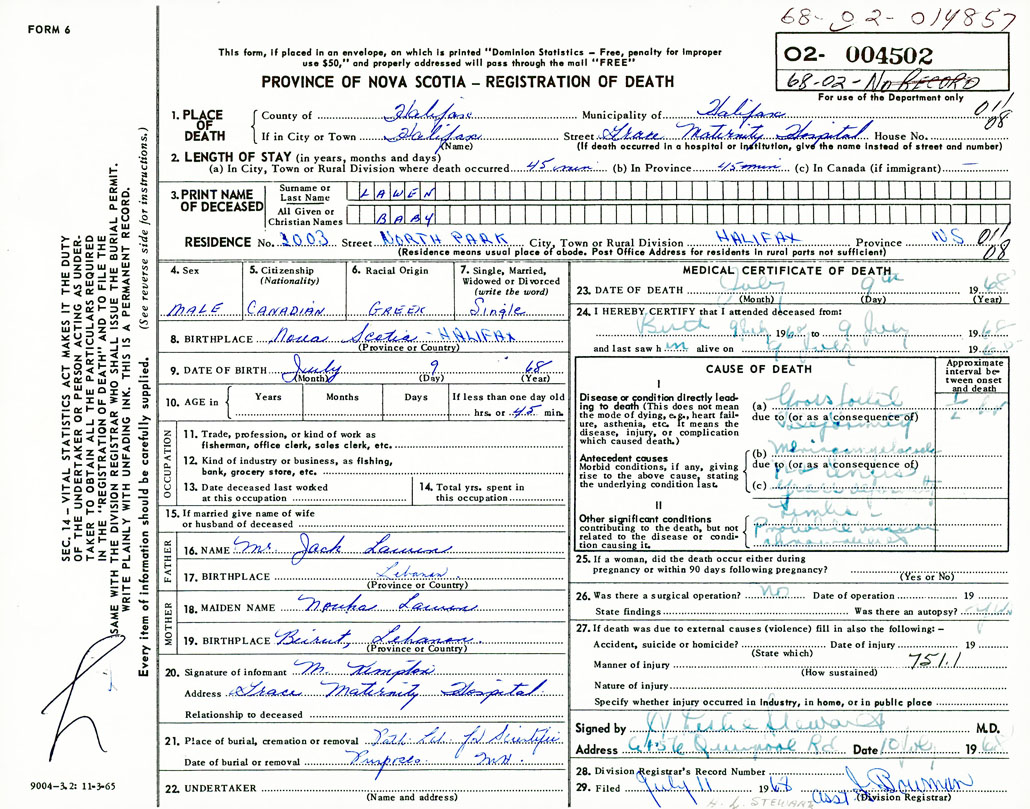 FORM 6
68-02-014857
This form, if placed in an envelope, on which is printed "Dominion Statistics – Free, penalty for improper
use $50," and properly addressed will pass through the mail "FREE"
PROVINCE OF NOVA SCOTIA – REGISTRATION OF DEATH
02- 004502
68-02-No RECORD
For use of the Department only
011
08
1. PLACE OF DEATH
County of Halifax Municipality of Halifax
If in City or Town Halifax Street Grace Maternity Hospital House No.
(Name) (If death occurred in a hospital or institution, give the name instead of street and number)
2. LENGTH OF STAY (in years, months and days)
(a) In City, Town or Rural Division where death occurred 45 min (b) In Province 45 min (c) In Canada (if immigrant) –
3. PRINT NAME OF DECEASED
Surname or Last Name LAWEN
All Given or Christian Names BABY
RESIDENCE No. 2003 Street NORTH PARK City, Town or Rural Division HALIFAX Province NS
011
08
(Residence means usual place of abode. Post Office Address for residents in rural parts not sufficient)
4. Sex MALE
5. Citizenship (Nationality) CANADIAN
6. Racial Origin GREEK
7. Single, Married, Widowed or Divorced (write the word) Single
8. BIRTHPLACE Nova Scotia - HALIFAX
(Province or Country)
9. DATE OF BIRTH July 9 68
(Month) (Day) (Year)
10. AGE in Years Months Days If less than one day old
hrs. or 45 min.
OCCUPATION
11. Trade, profession, or kind of work as
fisherman, office clerk, sales clerk, etc.
12. Kind of industry or business, as fishing,
bank, grocery store, etc.
13. Date deceased last worked
at this occupation
14. Total yrs. spent in
this occupation
15. If married give name of wife
or husband of deceased
FATHER
16. NAME Mr. Jack
17. BIRTHPLACE Lebanon
(Province or Country)
MOTHER
18. MAIDEN NAME Nouha
19. BIRTHPLACE Beirut, Lebanon.
(Province or Country)
20. Signature of informant M. Kempton
Address Grace Maternity Hospital
Relationship to deceased
21. Place of burial, cremation or removal Path. Lab. for Scientific
Date of burial or removal Purposes
22. UNDERTAKER
(Name and address)
MEDICAL CERTIFICATE OF DEATH
23. DATE OF DEATH July 9th 1968
(Month) (Day) (Year)
24. I HEREBY CERTIFY that I attended deceased from:
Birth 9 July 1968 to 9 July 1968
and last saw him alive on 9 July 1968
CAUSE OF DEATH
Approximate interval between onset and death
I
Disease or condition directly leading to death (This does not
the mode of dying, e.g., heart failure, asthenia, etc. It means the
disease, injury, or complication
which caused death.)
(a) Gross foetal
due to (or as a consequence of)
Deformity
Antecedent causes
Morbid conditions, if any, giving
rise to the above cause, stating
the underlying condition last.
(b)
due to (or as a consequence of)
(c)
II
Other significant conditions
contributing to the death, but not
related to the disease or condition causing it.
Limbs
25. If a woman, did the death occur either during
pregnancy or within 90 days following pregnancy?
(Yes or No)
26. Was there a surgical operation? No Date of operation 19
State findings Was there an autopsy?
27. If death was due to external causes (violence) fill in also the following: –
Accident, suicide or homicide? Date of injury 19
(State which)
Manner of injury 751.1
(How sustained)
Nature of injury
Specify whether injury occurred in industry, in home, or in public place
Signed by W Leslie Stewart M.D.
Address 6156 Quinpool Rd Date 10 1968
28. Division Registrar's Record Number
29. Filed July 11 1968 Asst J. Bowman
(Division Registrar)
H. L. STEWART
SEC. 14 – VITAL STATISTICS ACT MAKES IT THE DUTY
OF THE UNDERTAKER OR PERSON ACTING AS UNDER-
TAKER TO OBTAIN ALL THE PARTICULARS REQUIRED
IN THE "REGISTRATION OF DEATH" AND TO FILE THE
SAME WITH THE DIVISION REGISTRAR WHO SHALL ISSUE THE BURIAL PERMIT.
WRITE PLAINLY WITH UNFADING INK. THIS IS A PERMANENT RECORD.
Every item of information should be carefully supplied. (See reverse side for instructions.)
9004-3.2: 11-3-65